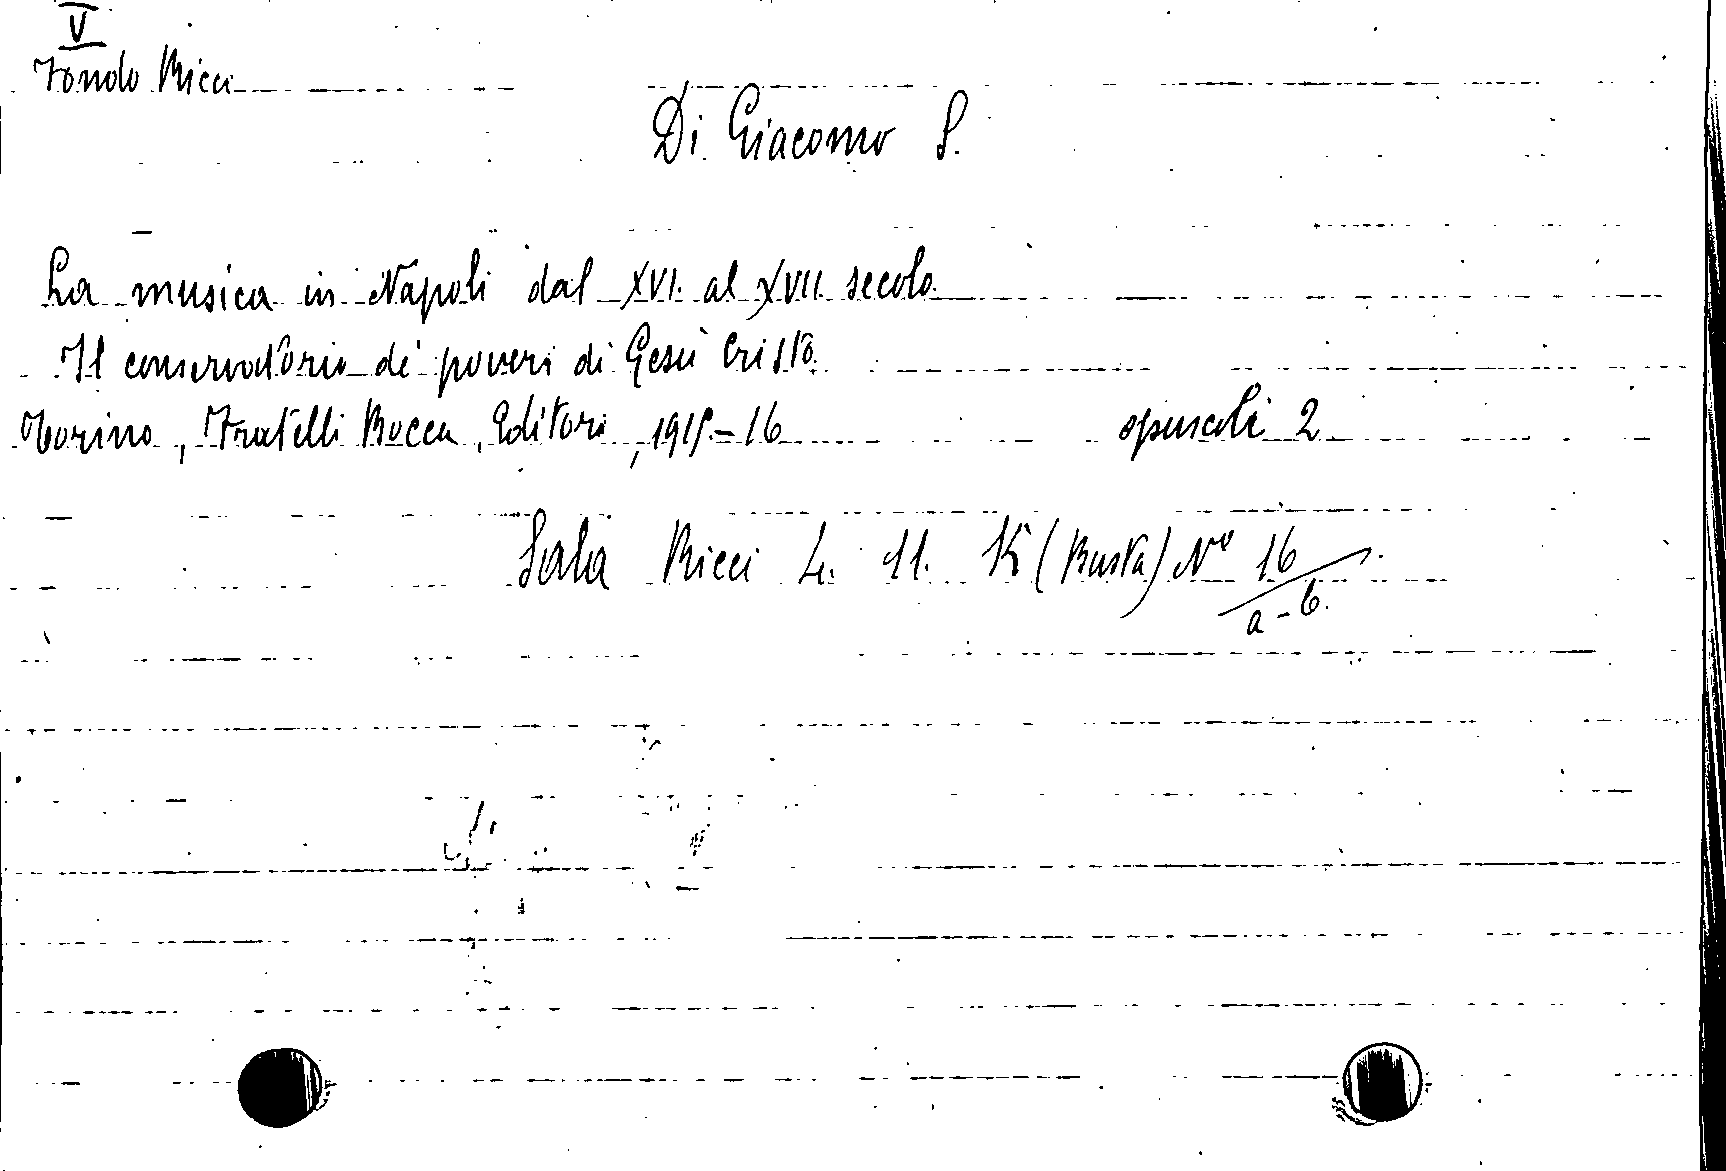 V
Fondo Ricci
Di Giacomo S.
La musica in Napoli dal XVI. al XVII. secolo
Il conservatorio de' poveri di Gesù Cristo.
Torino, Fratelli Bocca, Editori, 1915-16 opuscoli 2
Sala Ricci L. 11. K (Busta) Nº 16
a-b.